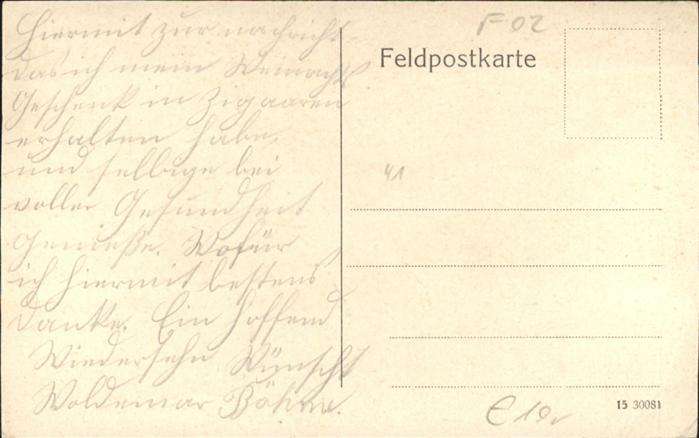 Hiermit zur nachricht
das ich mein Weinacht
Geschenk in Zigaaren
erhalten habe.
und selbige bei
voller Gesundheit
Genieße. Wofür
ich hiermit bestens
Danke. Ein hoffend
Wiedersehn Wünscht
Woldemar Böhme.
F 02
Feldpostkarte
41
15 30081